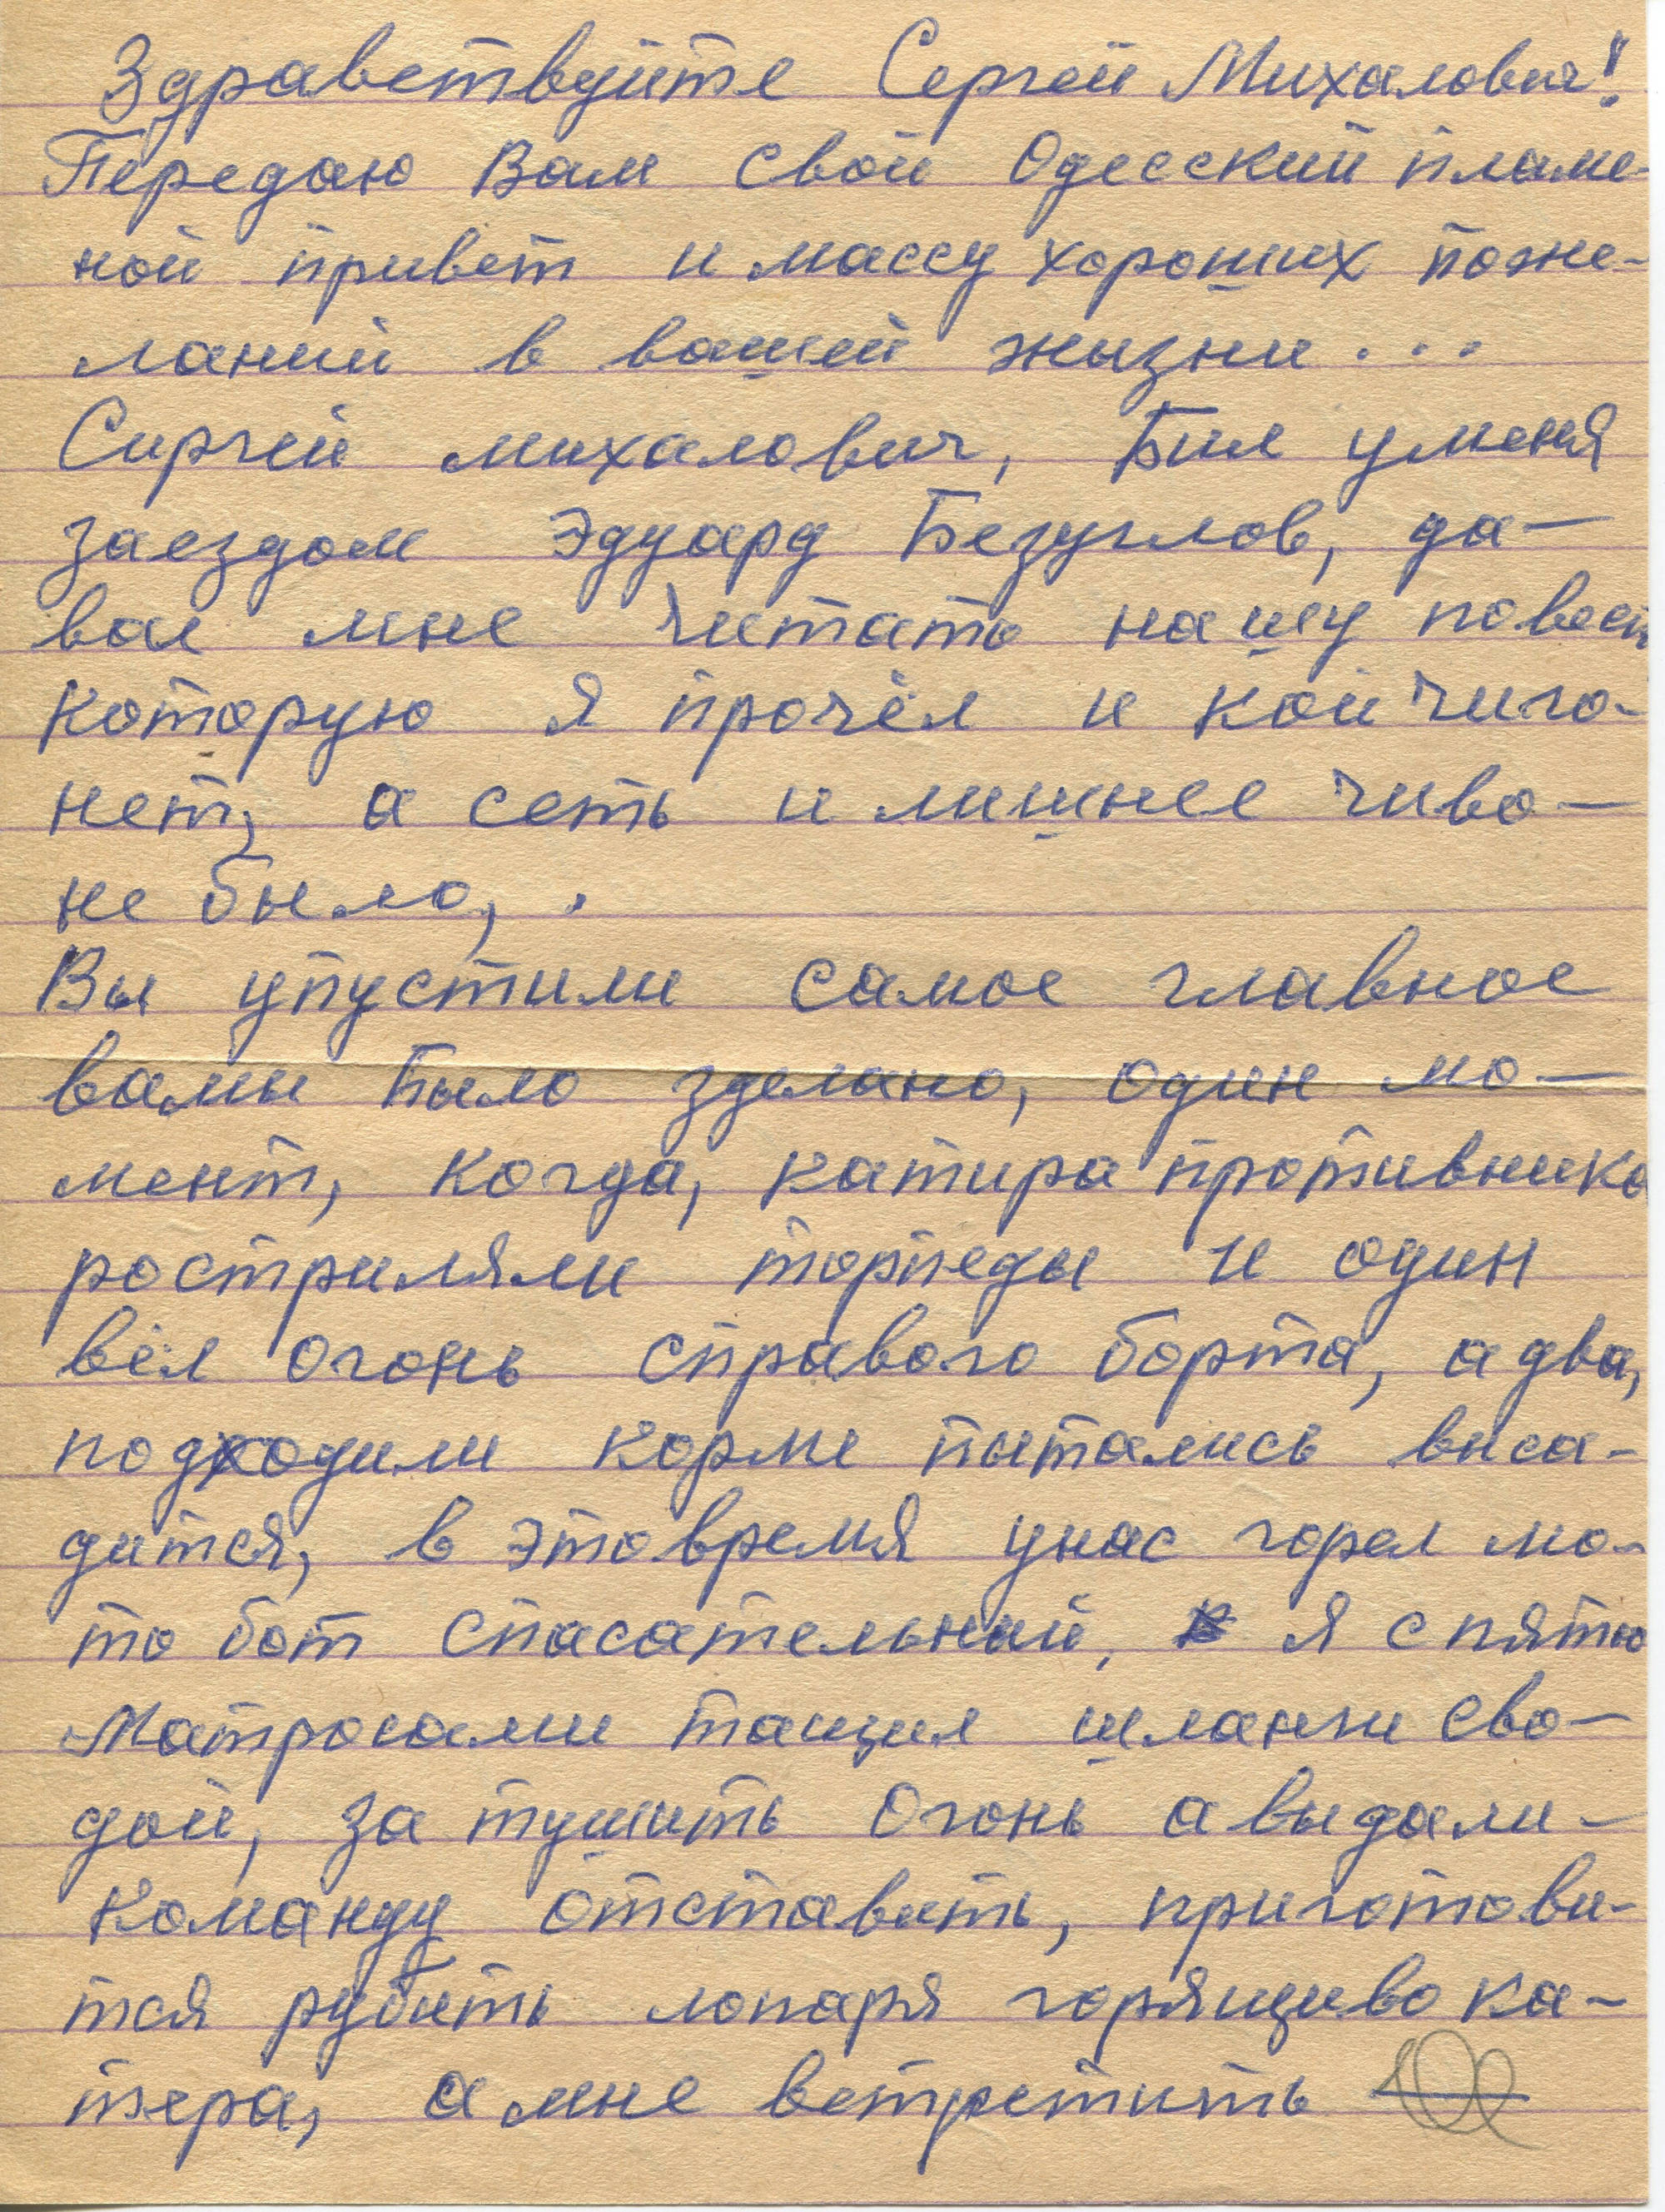 Здравствуйте Сергей Михалович!
Передаю Вам свой Одесский пламе-
ной привет и массу хороших поже-
ланий в вашей жызни...
Сиргей михалович, Бил уменя
заездом Эдуард Безуглов, да-
вал мне читать нашу повест
которую я прочёл и кой чиго-
нет, а сеть и лишнее чиво-
не было, .
Вы упустили самое главное
вамы было зделано, один мо-
мент, когда, катира противника
рострилями торпеды и один
вёл огонь справого борта, а два,
подходили корме пытались виса-
дится, в этовремя унас горел мо-
то бот спасательный, я с пятю
Матросами тащил шланги сво-
дой, за тушить Огонь авыдали-
команду отставить, приготови-
тся рубить лопаря горящиво ка-
тера, а мне встретить